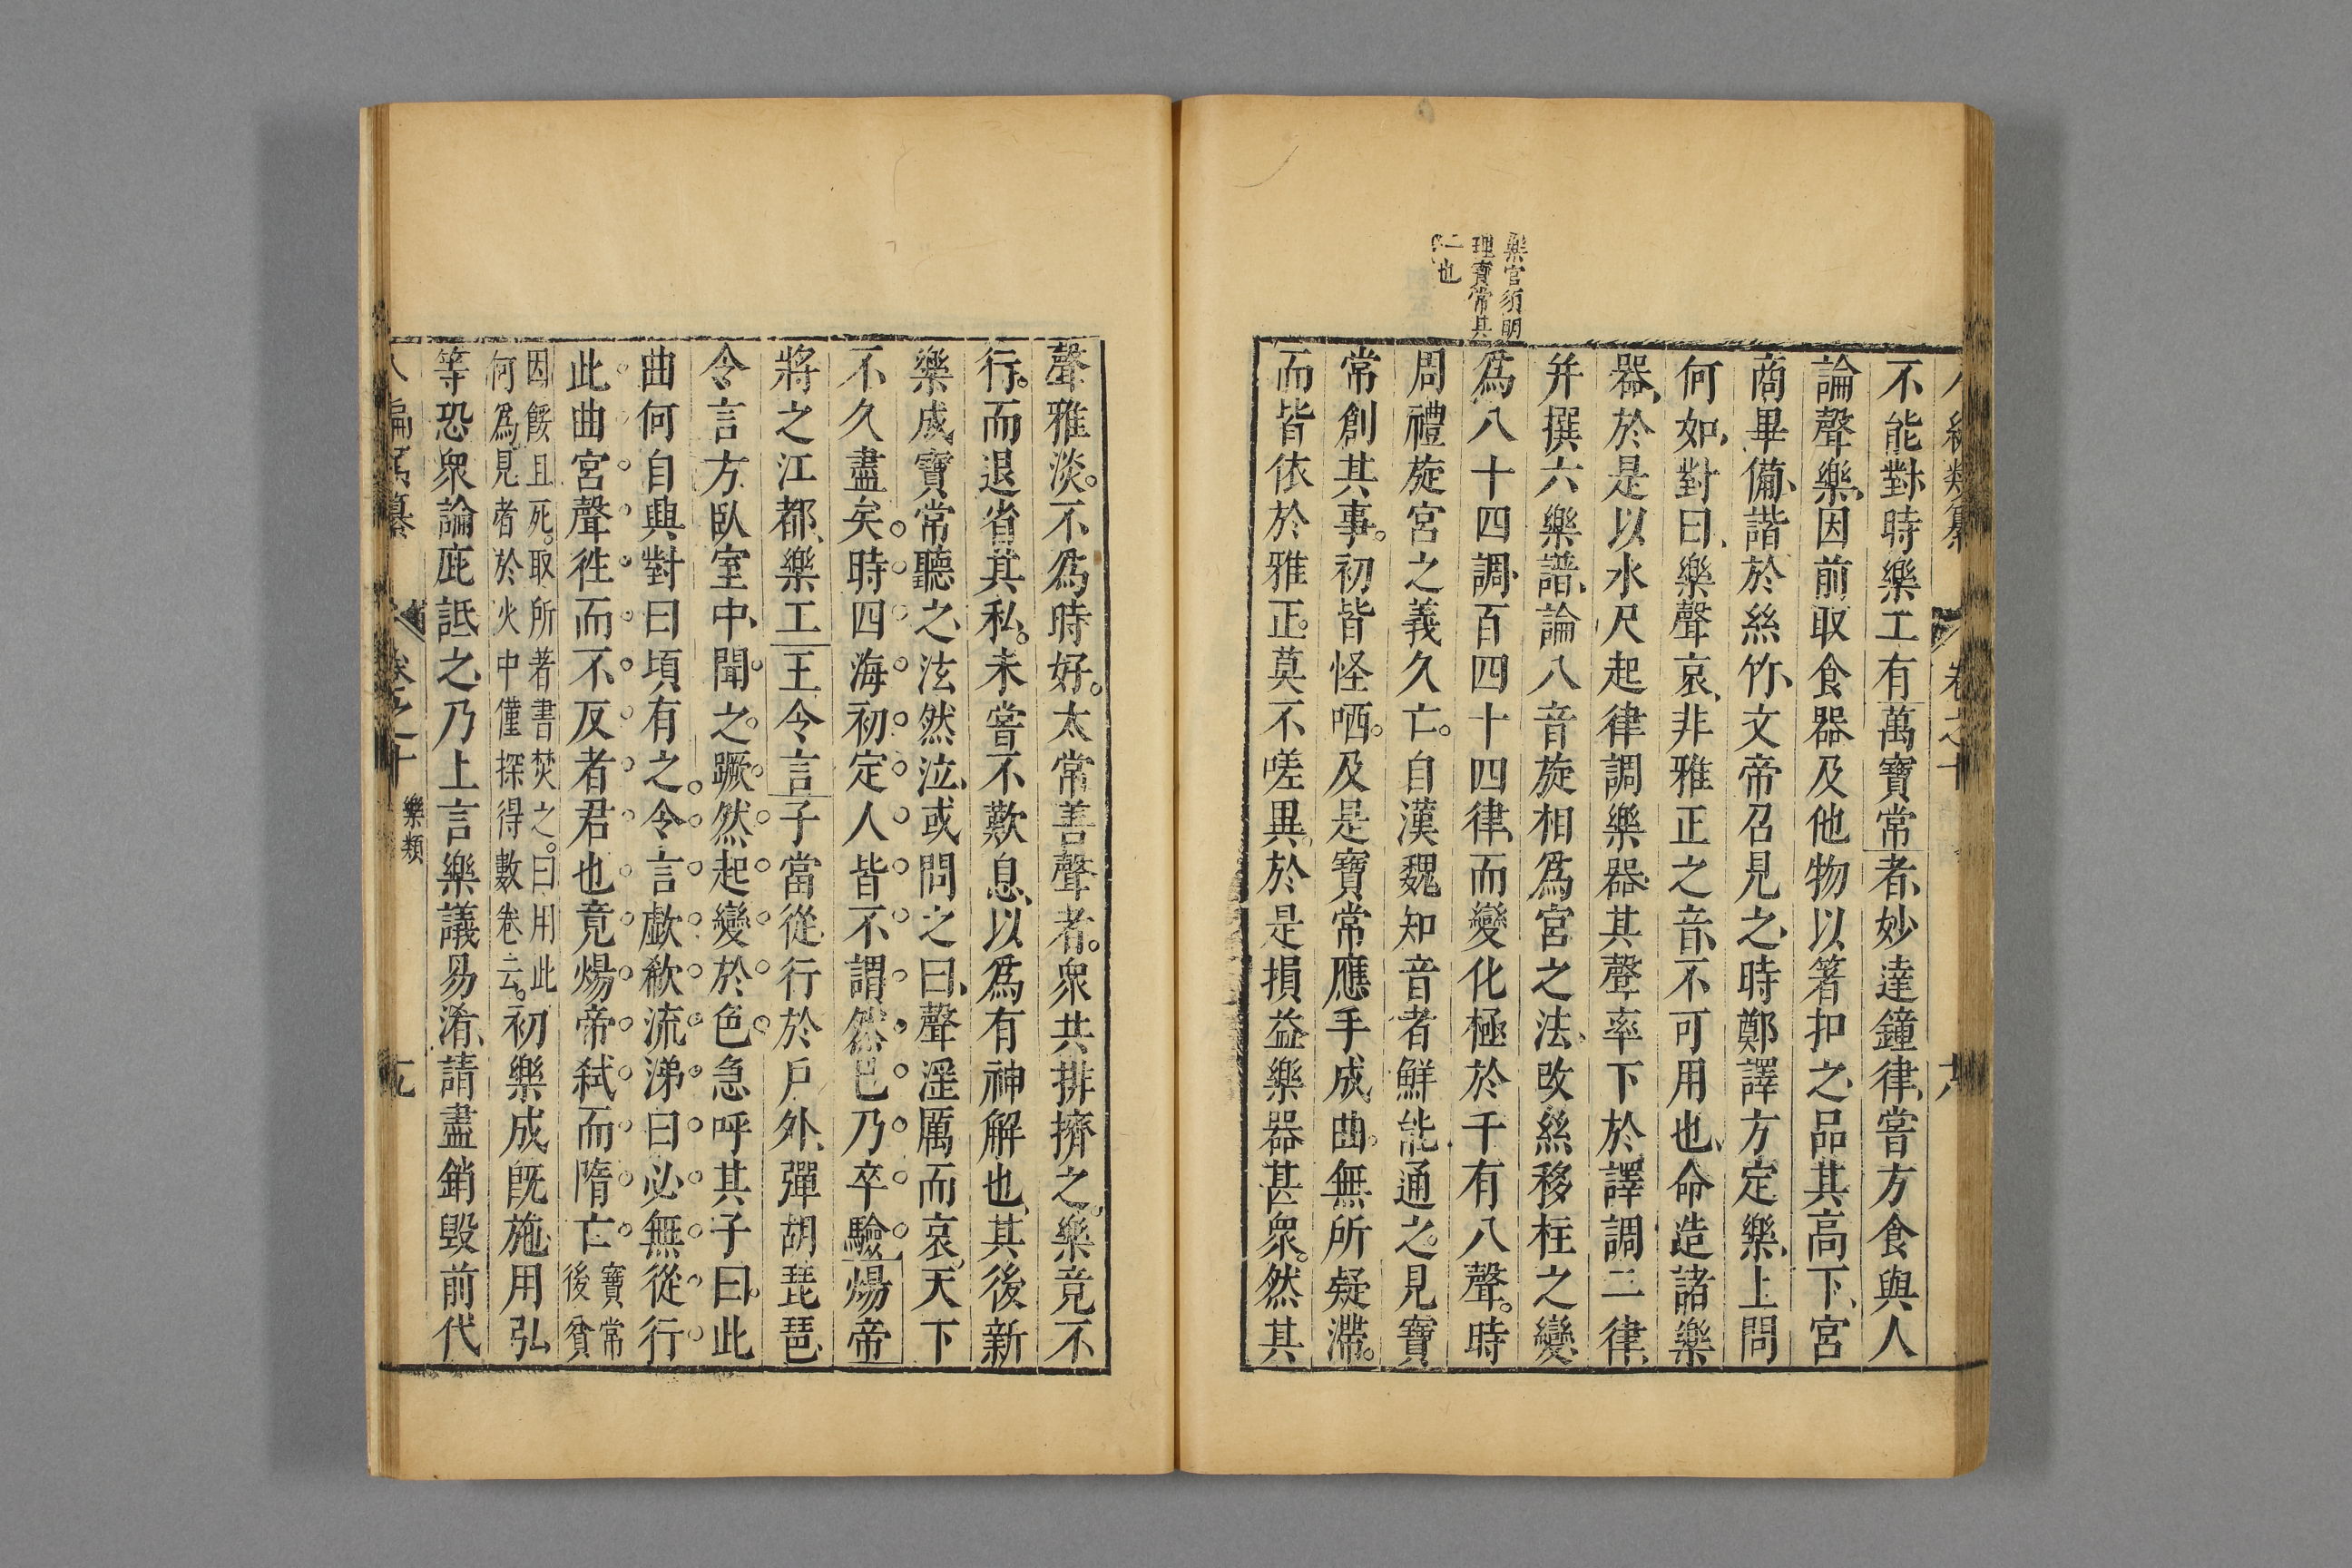 樂官須明
理寶常其
一也
卷之十
不能對、時樂工有萬寶常者、妙達鐘律、嘗方食與人
論聲樂、因前取食器及他物以箸扣之、品其高下、宮
商畢備、諧於絲竹、文帝召見之、時鄭譯方定樂、上問
何如、對曰、樂聲哀、非雅正之音、不可用也、命造諸樂
器、於是以水尺起律調樂器、其聲率下於譯調二律、
并撰六樂譜、論八音旋相爲宮之法、改絲移柱之變、
爲八十四調、百四十四律、而變化極於千有八聲。時
周禮旋宮之義久亡。自漢魏知音者鮮能通之。見寶
常創其事。初皆怪哂。及是寶常應手成曲。無所疑滯。
而皆依於雅正。莫不嗟異。於是損益樂器甚衆。然其
聲雅淡。不爲時好。太常善聲者。衆共排擠之。樂竟不
行。而退省其私。未嘗不歎息、以爲有神解也、其後新
樂成、寶常聽之、泫然泣、或問之、曰、聲淫厲而哀。天下
不久盡矣。時四海初定人皆不謂然已乃卒驗煬帝
將之江都、樂工王令言子當從行於戶外、彈胡琵琶、
令言方臥室中、聞之蹶然起變於色急呼其子曰。此
曲何自與對曰頃有之令言歔欷流涕曰必無從行
此曲宮聲徃而不反者君也竟煬帝弑而隋亡寶常
後貧
因餒且死。取所著書焚之。曰用此
何爲。見者於火中僅探得數卷云。初樂成旣施用弘
等恐衆論庇詆之、乃上言樂議易淆、請盡銷毀前代
卷之十 樂類